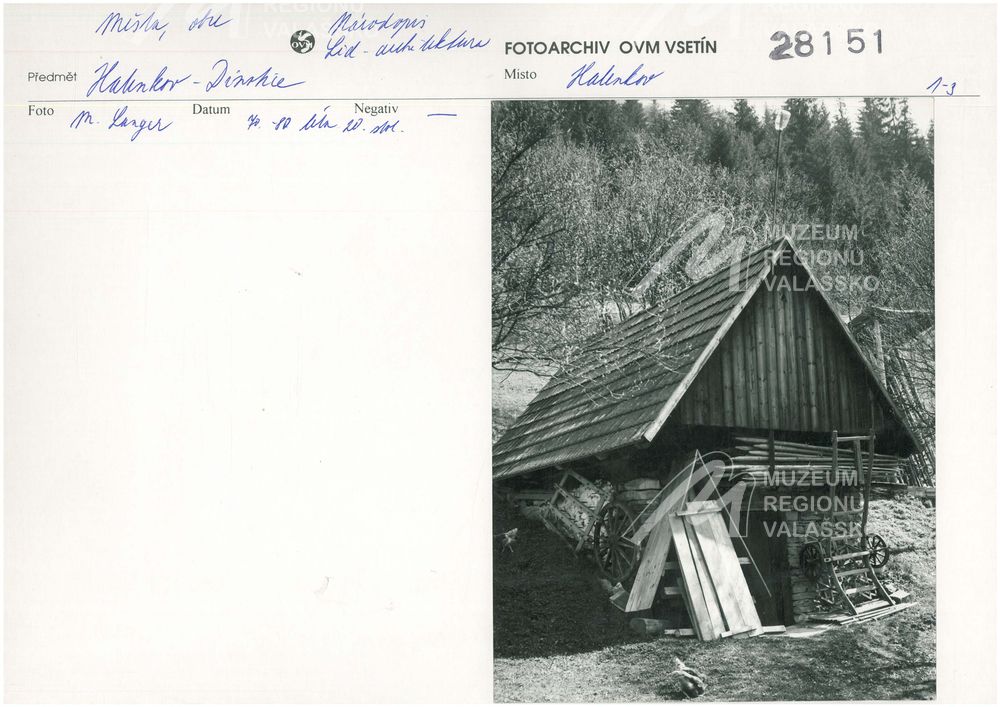 Místa, obce
Národopis
Lid-architektura
OVM
FOTOARCHIV OVM VSETÍN
28151
Předmět Halenkov - Dinotice
Místo Halenkov
1-3
Foto M. Langer
Datum 70.-80 léta 20. stol.
Negativ —
MUZEUM
REGIONU
VALAŠSKO
MUZEUM
REGIONU
VALAŠSKO